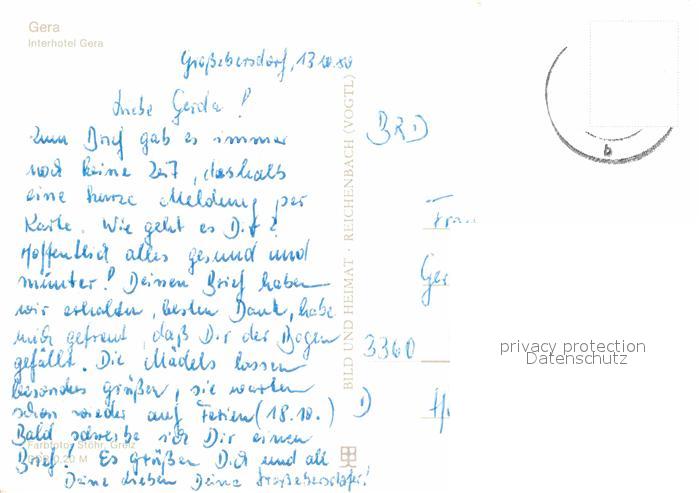 Gera
Interhotel Gera
Großebersdorf, 13.10.80
Liebe Gerda!
Zum Brief gab es immer
noch keine Zeit, deshalb
eine kurze Meldung per
Karte. Wie geht es Dir?
Hoffentlich alles gesund und
munter! Deinen Brief haben
wir erhalten, besten Dank, habe
mich gefreut, daß Dir der Bogen
gefällt. Die Mädels lassen
besonders grüßen, sie warten
schon wieder auf Ferien (18.10.)
Bald schreibe ich Dir einen
Brief! Es grüßen Dich und all
Deine Lieben Deine Großebersdorfer!
Farbfoto: Stöhr, Greiz
0,20 M
BILD UND HEIMAT · REICHENBACH (VOGTL)
b
BRD
Frau
Ger
3360
D
privacy protection
Datenschutz